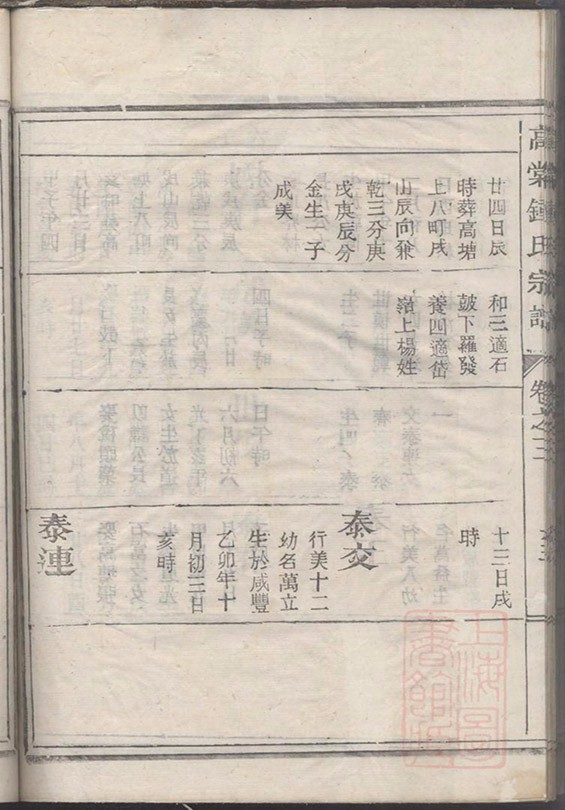 高棠鍾氏宗譜
卷之三
廿四日辰
時葬高塘
上八町戌
山辰向兼
乾三分庚
戌庚辰分
金生一子
成美
和三適石
鼓下羅發
養四適岱
嶺上楊姓
十三日戌
時
泰交
行美十二
幼名萬立
生於咸豐
乙卯年十
月初三日
亥時
泰連
上海圖書館藏